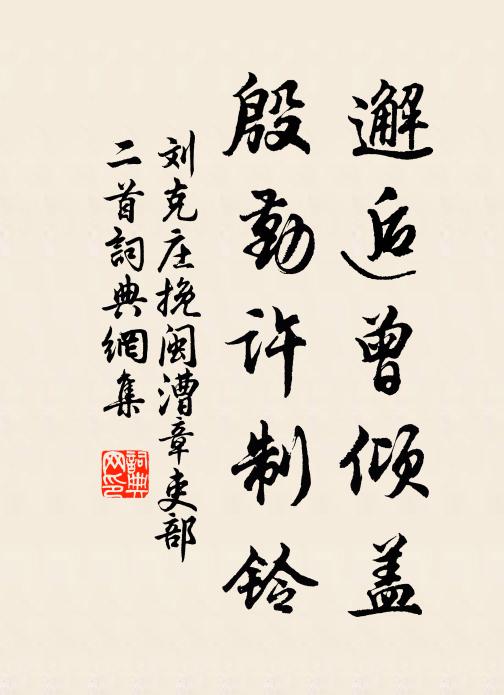 邂逅曾倾盖
殷勤许制铃
刘克庄挽闽漕章吏部
二首词典網集
詞典網印